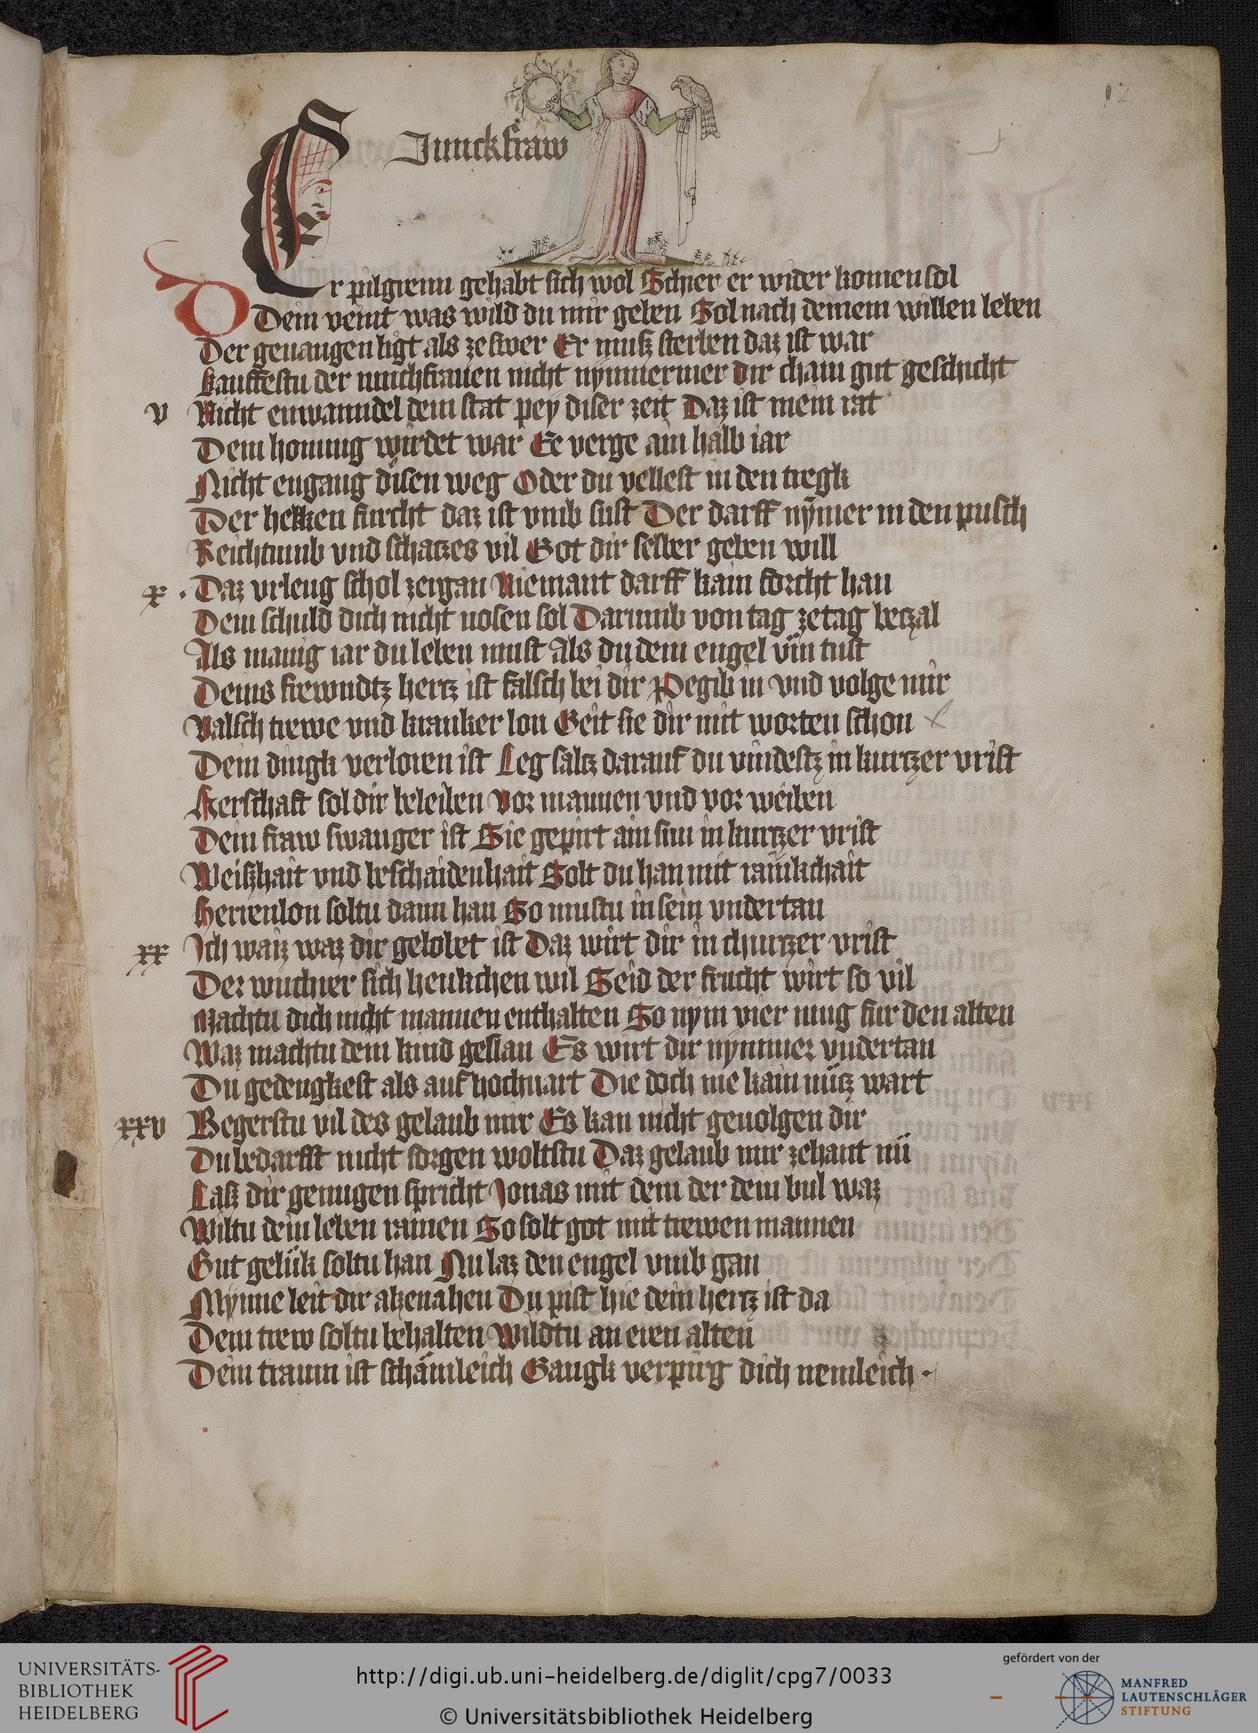 12
Junckfraw
Er pilgreim gehabt sich wol Schier er wider komen sol
Dein veint was wild du mir geben Sol nach deinem willen leben
Der geuangen ligt als ze swer Er muß sterben daz ist war
kauffestu der junchfrauen nicht nymmermer dir cham gut geschicht
v Nicht enwanndel dein stat pey diser zeit Daz ist mein rat
Dem honung wirdet war Ee verge ain halb iar
Nicht engang disen weg Oder du vellest in den tregk
Der hekken furcht daz ist vmb sust Der darff nymer in den pusch
Reichtumb vnd schatzes vil Got dir selber geben will
x Daz vrleug schol zergan Niemant darff kain forcht han
Dein schuld dich nicht nosen sol Darumb von tag ze tag betzal
Als manig iar du leben must Als du dem engel vin tust
Deins frewndtz hertz ist falsch bei dir Pegib in vnd volge mir
Valsch trewe vnd kranker lon Geit sie dir mit worten schon
Dein dingk verloren ist Leg saltz darauf du vindestz in kurtzer vrist
Herschaft sol dir beleiben Vor mannen vnd vor weiben
Dein fraw swanger ist Sie gepirt ain sun in kurtzer vrist
Weißhait vnd beschaidenhait Solt du han mit rainkchait
Herrenlon soltu dann han So mustu in sein vndertan
xx Ich waiz waz dir gelobet ist Daz wirt dir in churtzer vrist
Der wuchrer sich henkchen wil Seid der frucht wirt so vil
Machtu dich nicht mannen enthalten So nym vier iung fur den alten
Waz machtu dein kind geslan Es wirt dir nymmer vndertan
Du gedengkest als auf hochuart Die doch nie kain nütz wart
xxv Begerstu vil des gelaub mir Es kan nicht geuolgen dir
Du bedarfft nicht sorgen woltstu Daz gelaub mir zehant nu
Laß dir genugen spricht Jonas mit dem der dein bul waz
Wiltu dein leben rainen So solt got mit trewen mainen
Gut gelük soltu han Nu laz den engel vmb gan
Mynne leit dir alzenahen Du pist hie dein hertz ist da
Dein trew soltu behalten Wildtu an eren alten
Dein traum ist schämleich Gangk verpirg dich nemleich
UNIVERSITÄTS-
BIBLIOTHEK
HEIDELBERG
http://digi.ub.uni-heidelberg.de/diglit/cpg7/0033
© Universitätsbibliothek Heidelberg
gefördert von der
MANFRED
LAUTENSCHLÄGER
STIFTUNG